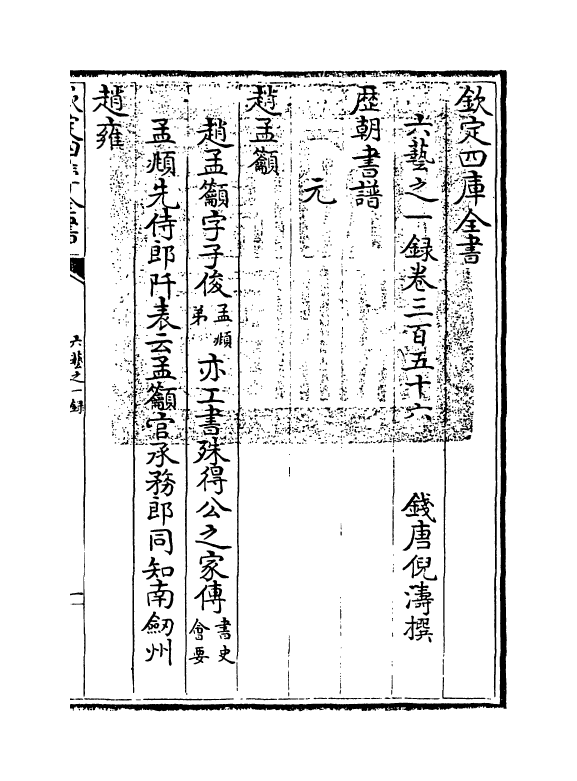 欽定四庫全書
六藝之一録卷三百五十六
錢唐倪濤撰
歴朝書譜
元
趙孟籲
趙孟籲字子俊孟頫弟亦工書殊得公之家傳書史會要
孟頫先侍郎阡表云孟籲官承務郎同知南劒州
趙雍
欽定四庫全書
六藝之一録
一